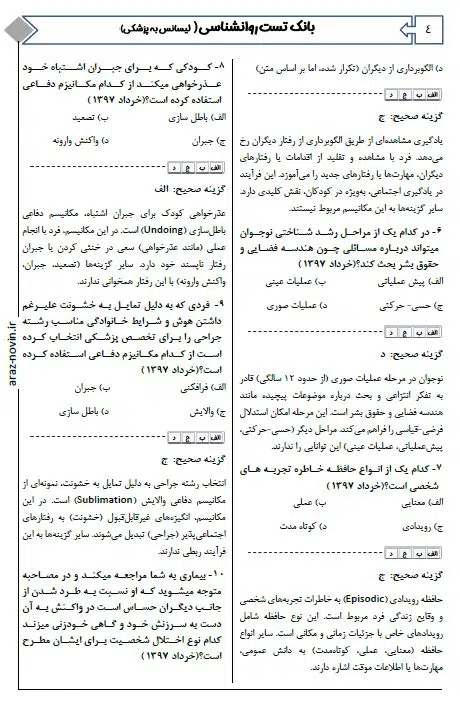 ٤
بانک تست روانشناسی ( لیسانس به پزشکی)
د) الگوبرداری از دیگران (تکرار شده، اما بر اساس متن)
الف ب ج د
گزینه صحیح: ج
یادگیری مشاهده‌ای از طریق الگوبرداری از رفتار دیگران رخ
می‌دهد. فرد با مشاهده و تقلید از اقدامات یا رفتارهای
دیگران، مهارت‌ها یا رفتارهای جدید را می‌آموزد. این فرآیند
در یادگیری اجتماعی، به‌ویژه در کودکان، نقش کلیدی دارد.
سایر گزینه‌ها به این مکانیسم مربوط نیستند.
۶- در کدام یک از مراحل رشد شناختی نوجوان
میتواند درباره مسائلی چون هندسه فضایی و
حقوق بشر بحث کند؟(خرداد ۱۳۹۷)
الف) پیش عملیاتی ب) عملیات عینی
ج) حسی- حرکتی د) عملیات صوری
الف ب ج د
گزینه صحیح: د
نوجوان در مرحله عملیات صوری (از حدود ۱۲ سالگی) قادر
به تفکر انتزاعی و بحث درباره موضوعات پیچیده مانند
هندسه فضایی و حقوق بشر است. این مرحله امکان استدلال
فرضی-قیاسی را فراهم می‌کند. مراحل دیگر (حسی-حرکتی،
پیش‌عملیاتی، عملیات عینی) این توانایی را ندارند.
۷- کدام یک از انواع حافظه خاطره تجربه های
شخصی است؟(خرداد ۱۳۹۷)
الف) معنایی ب) عملی
ج) رویدادی د) کوتاه مدت
الف ب ج د
گزینه صحیح: ج
حافظه رویدادی (Episodic) به خاطرات تجربه‌های شخصی
و وقایع زندگی فرد مربوط است. این نوع حافظه شامل
رویدادهای خاص با جزئیات زمانی و مکانی است. سایر انواع
حافظه (معنایی، عملی، کوتاه‌مدت) به دانش عمومی،
مهارت‌ها یا اطلاعات موقت اشاره دارند.
۸- کودکی که برای جبران اشتباه خود
عذرخواهی میکند از کدام مکانیزم دفاعی
استفاده کرده است؟(خرداد ۱۳۹۷)
الف) باطل سازی ب) تصعید
ج) جبران د) واکنش وارونه
الف ب ج د
گزینه صحیح: الف
عذرخواهی کودک برای جبران اشتباه، مکانیسم دفاعی
باطل‌سازی (Undoing) است. در این مکانیسم، فرد با انجام
عملی (مانند عذرخواهی) سعی در خنثی کردن یا جبران
رفتار ناپسند خود دارد. سایر گزینه‌ها (تصعید، جبران،
واکنش وارونه) با این رفتار همخوانی ندارند.
۹- فردی که به دلیل تمایل به خشونت علیرغم
داشتن هوش و شرایط خانوادگی مناسب رشته
جراحی را برای تخصص پزشکی انتخاب کرده
است از کدام مکانیزم دفاعی استفاده کرده
است؟(خرداد ۱۳۹۷)
الف) فرافکنی ب) جبران
ج) والایش د) باطل سازی
الف ب ج د
گزینه صحیح: ج
انتخاب رشته جراحی به دلیل تمایل به خشونت، نمونه‌ای از
مکانیسم دفاعی والایش (Sublimation) است. در این
مکانیسم، انگیزه‌های غیرقابل‌قبول (خشونت) به رفتارهای
اجتماعی‌پذیر (جراحی) تبدیل می‌شوند. سایر گزینه‌ها به این
فرآیند ربطی ندارند.
۱۰- بیماری به شما مراجعه میکند و در مصاحبه
متوجه میشوید که او نسبت به طرد شدن از
جانب دیگران حساس است در واکنش به آن
دست به سرزنش خود و گاهی خودزنی میزند
کدام نوع اختلال شخصیت برای ایشان مطرح
است؟(خرداد ۱۳۹۷)
araz-novin.ir